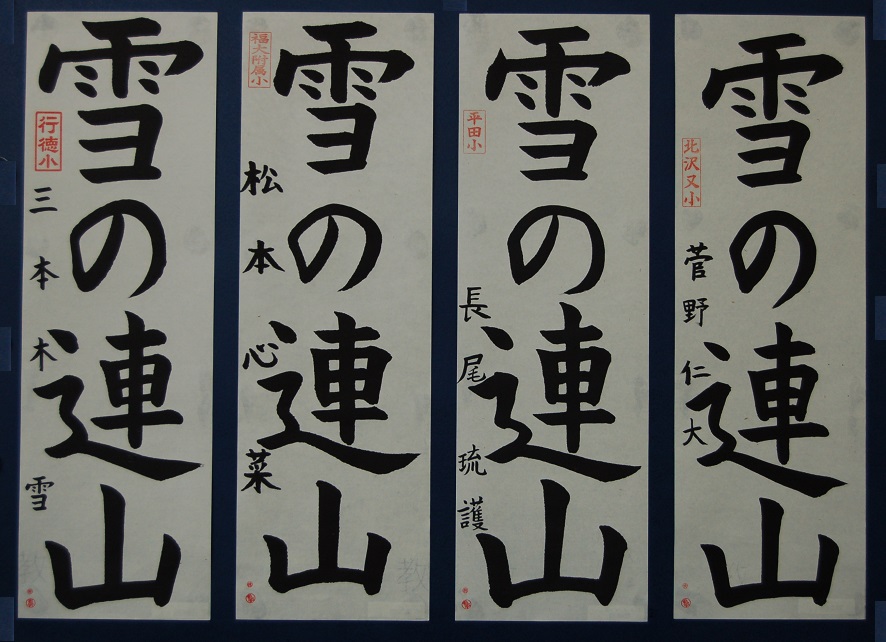 雪の連山
行徳小
三本木雪
雪の連山
福大附属小
松本心菜
雪の連山
平田小
長尾琉護
雪の連山
北沢又小
菅野仁大